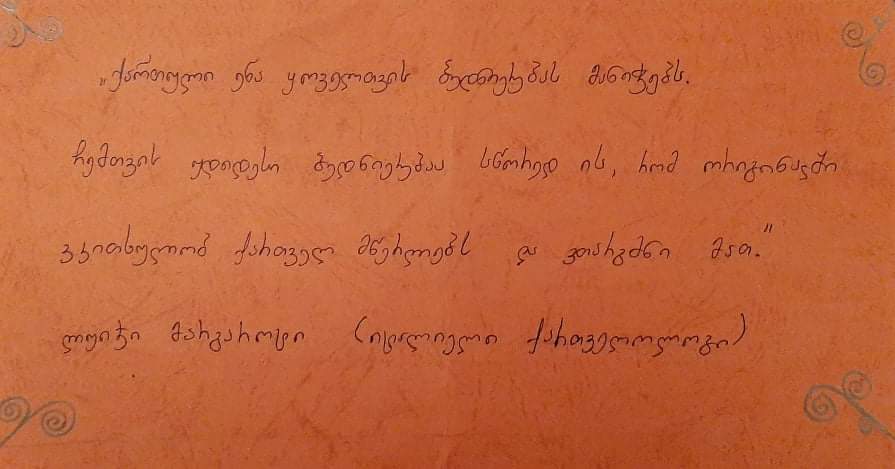 „ქართული ენა ყოველთვის ბედნიერებას მანიჭებს.
ჩემთვის უდიდესი ბედნიერებაა სწორედ ის, რომ ორიგინალში
ვკითხულობ ქართველ მწერლებს და ვთარგმნი მათ."
ლუიჯი მაგაროტი (იტალიელი ქართველოლოგი)